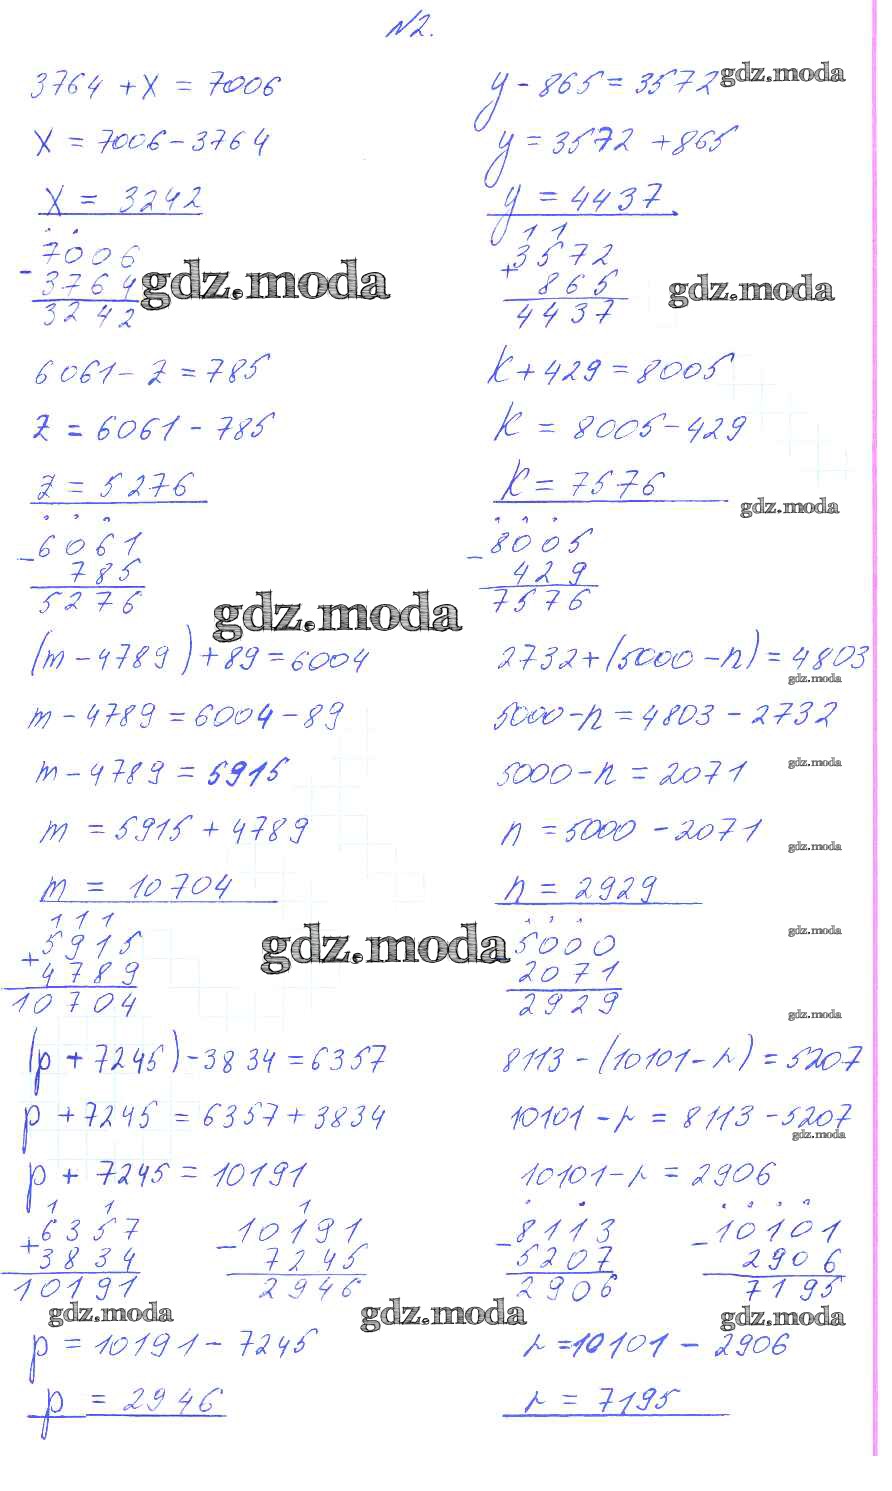 №2.
3764 + x = 7006
x = 7006 - 3764
x = 3242
7006
- 3764
3242
gdz.moda
y - 865 = 3572
gdz.moda
y = 3572 + 865
y = 4437
1 1
3572
+ 865
4437
gdz.moda
6061 - z = 785
z = 6061 - 785
z = 5276
6061
- 785
5276
k + 429 = 8005
k = 8005 - 429
k = 7576
gdz.moda
8005
- 429
7576
gdz.moda
(m - 4789) + 89 = 6004
m - 4789 = 6004 - 89
m - 4789 = 5915
m = 5915 + 4789
m = 10704
1 1 1
5915
+ 4789
10704
gdz.moda
2732 + (5000 - n) = 4803
gdz.moda
5000 - n = 4803 - 2732
5000 - n = 2071
gdz.moda
n = 5000 - 2071
gdz.moda
n = 2929
gdz.moda
5000
2071
2929
gdz.moda
(p + 7245) - 3834 = 6357
p + 7245 = 6357 + 3834
p + 7245 = 10191
1 1
6357
+ 3834
10191
1
10191
- 7245
2946
gdz.moda
gdz.moda
p = 10191 - 7245
p = 2946
8113 - (10101 - r) = 5207
10101 - r = 8113 - 5207
gdz.moda
10101 - r = 2906
8113
- 5207
2906
10101
- 2906
7195
gdz.moda
r = 10101 - 2906
r = 7195